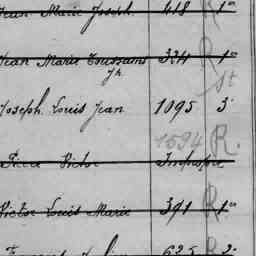 Jean Marie Joseph. 418 R 1°
Jean Marie Toussaint 324 R 1°
Jh St
Joseph Louis Jean 1095 3°
1594 R.
Pierre Victor
Victor Louis Marie 391 R 1°
635 R 2°